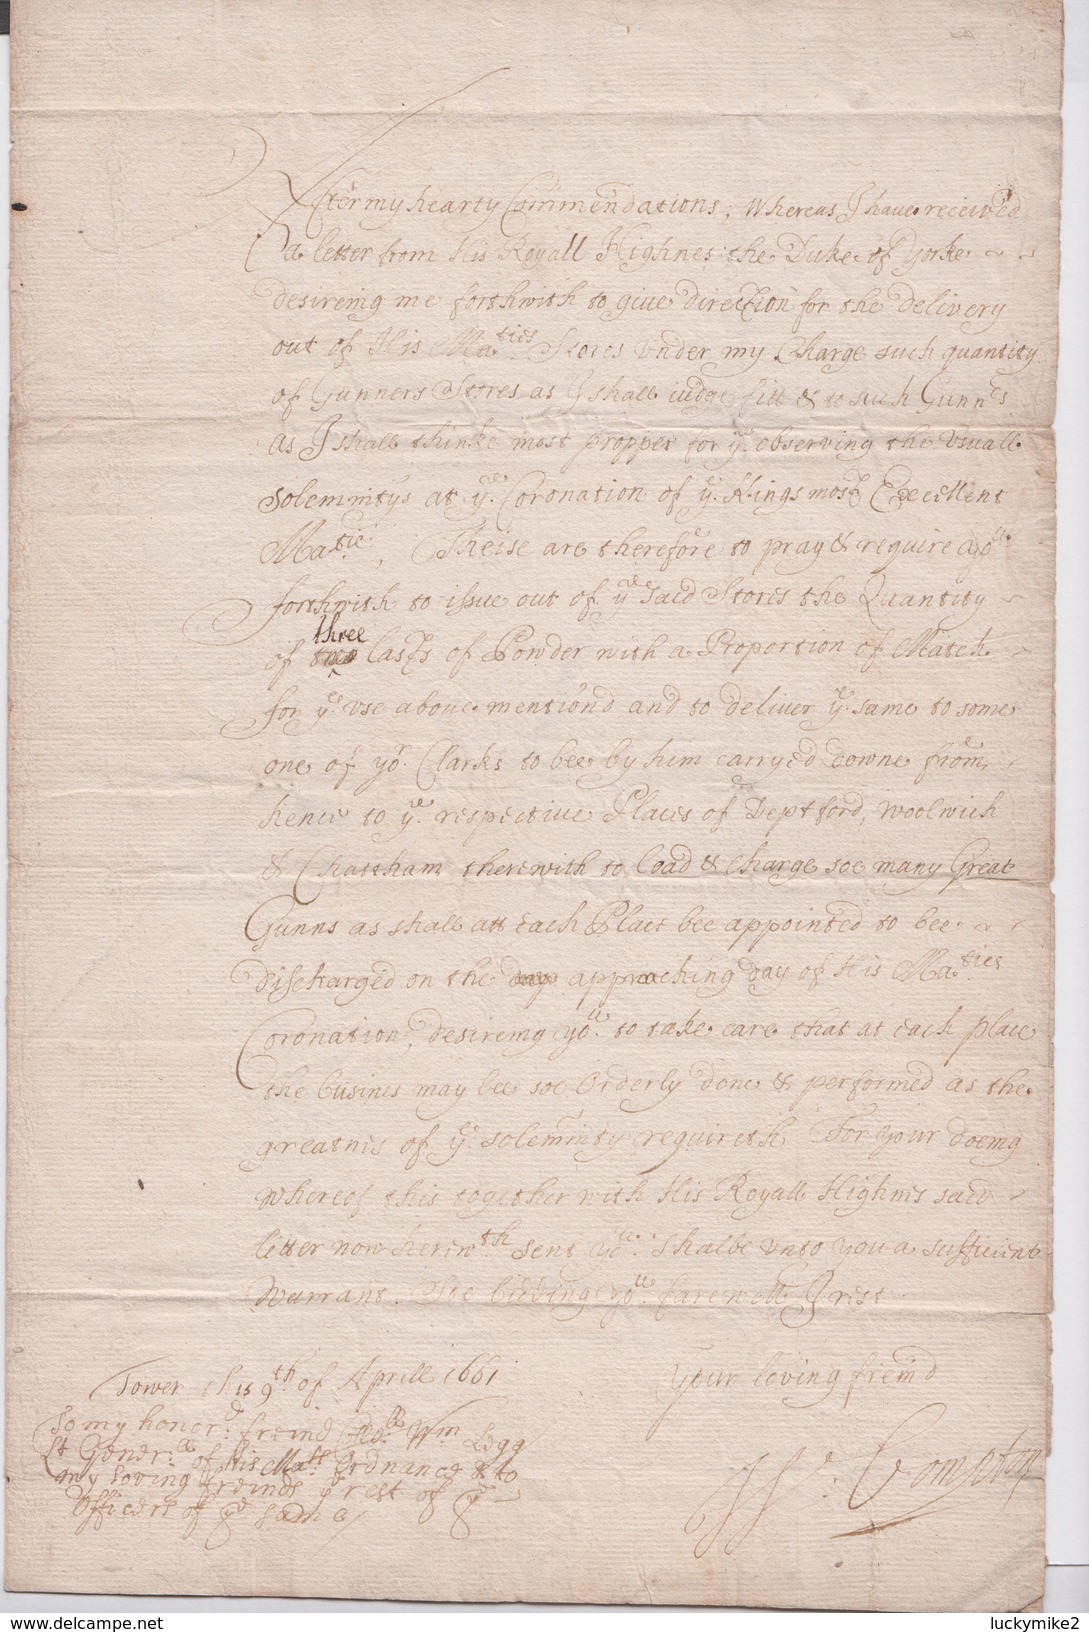 After my hearty Commendations, Whereas I haue received
a letter from His Royall Highnes the Duke of Yorke
desireing me forthwith to giue direction for the delivery
out of His Ma:ties Stores vnder my Charge such quantity
of Gunners Stores as I shall iudge fitt & to such Gunn:rs
as I shall thinke most propper for ye observing the vsuall
Solemnitys at ye Coronation of ye Kings most Excellent
Ma:tie, Theise are therefore to pray & require you
forthwith to issue out of ye said Stores the Quantity
three
of two Lasts of Powder with a Proportion of Match
for ye vse aboue mention'd and to deliver ye same to some
one of yor Clarks to bee by him carryed downe from
hence to ye respective Places of Deptford, Woolwich
& Chattham therewith to Load & Charge soe many Great
Gunns as shall att each Place bee appointed to bee
discharged on the day approaching day of His Ma:ties
Coronation, desireing you to take care that at each place
the busines may bee soe Orderly done & performed as the
greatnes of ye solemnity requireth For your doeing
whereof this together with His Royall Highnes said
letter now herewth sent you shalbe vnto you a sufficient
Warrant. Soe bidding you farewell I rest
Your loving freind
Tower this 9th of Aprill 1661
To my honor:d freind Coll: Wm Legg
Lt Gener:ll of His Ma:ties Ordnance & to
my loving freinds ye rest of ye
Officers of ye same
Wm: Compton
www.delcampe.net
luckymike2